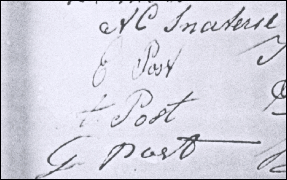 AC Inaterse
E Post
A Post
G Post